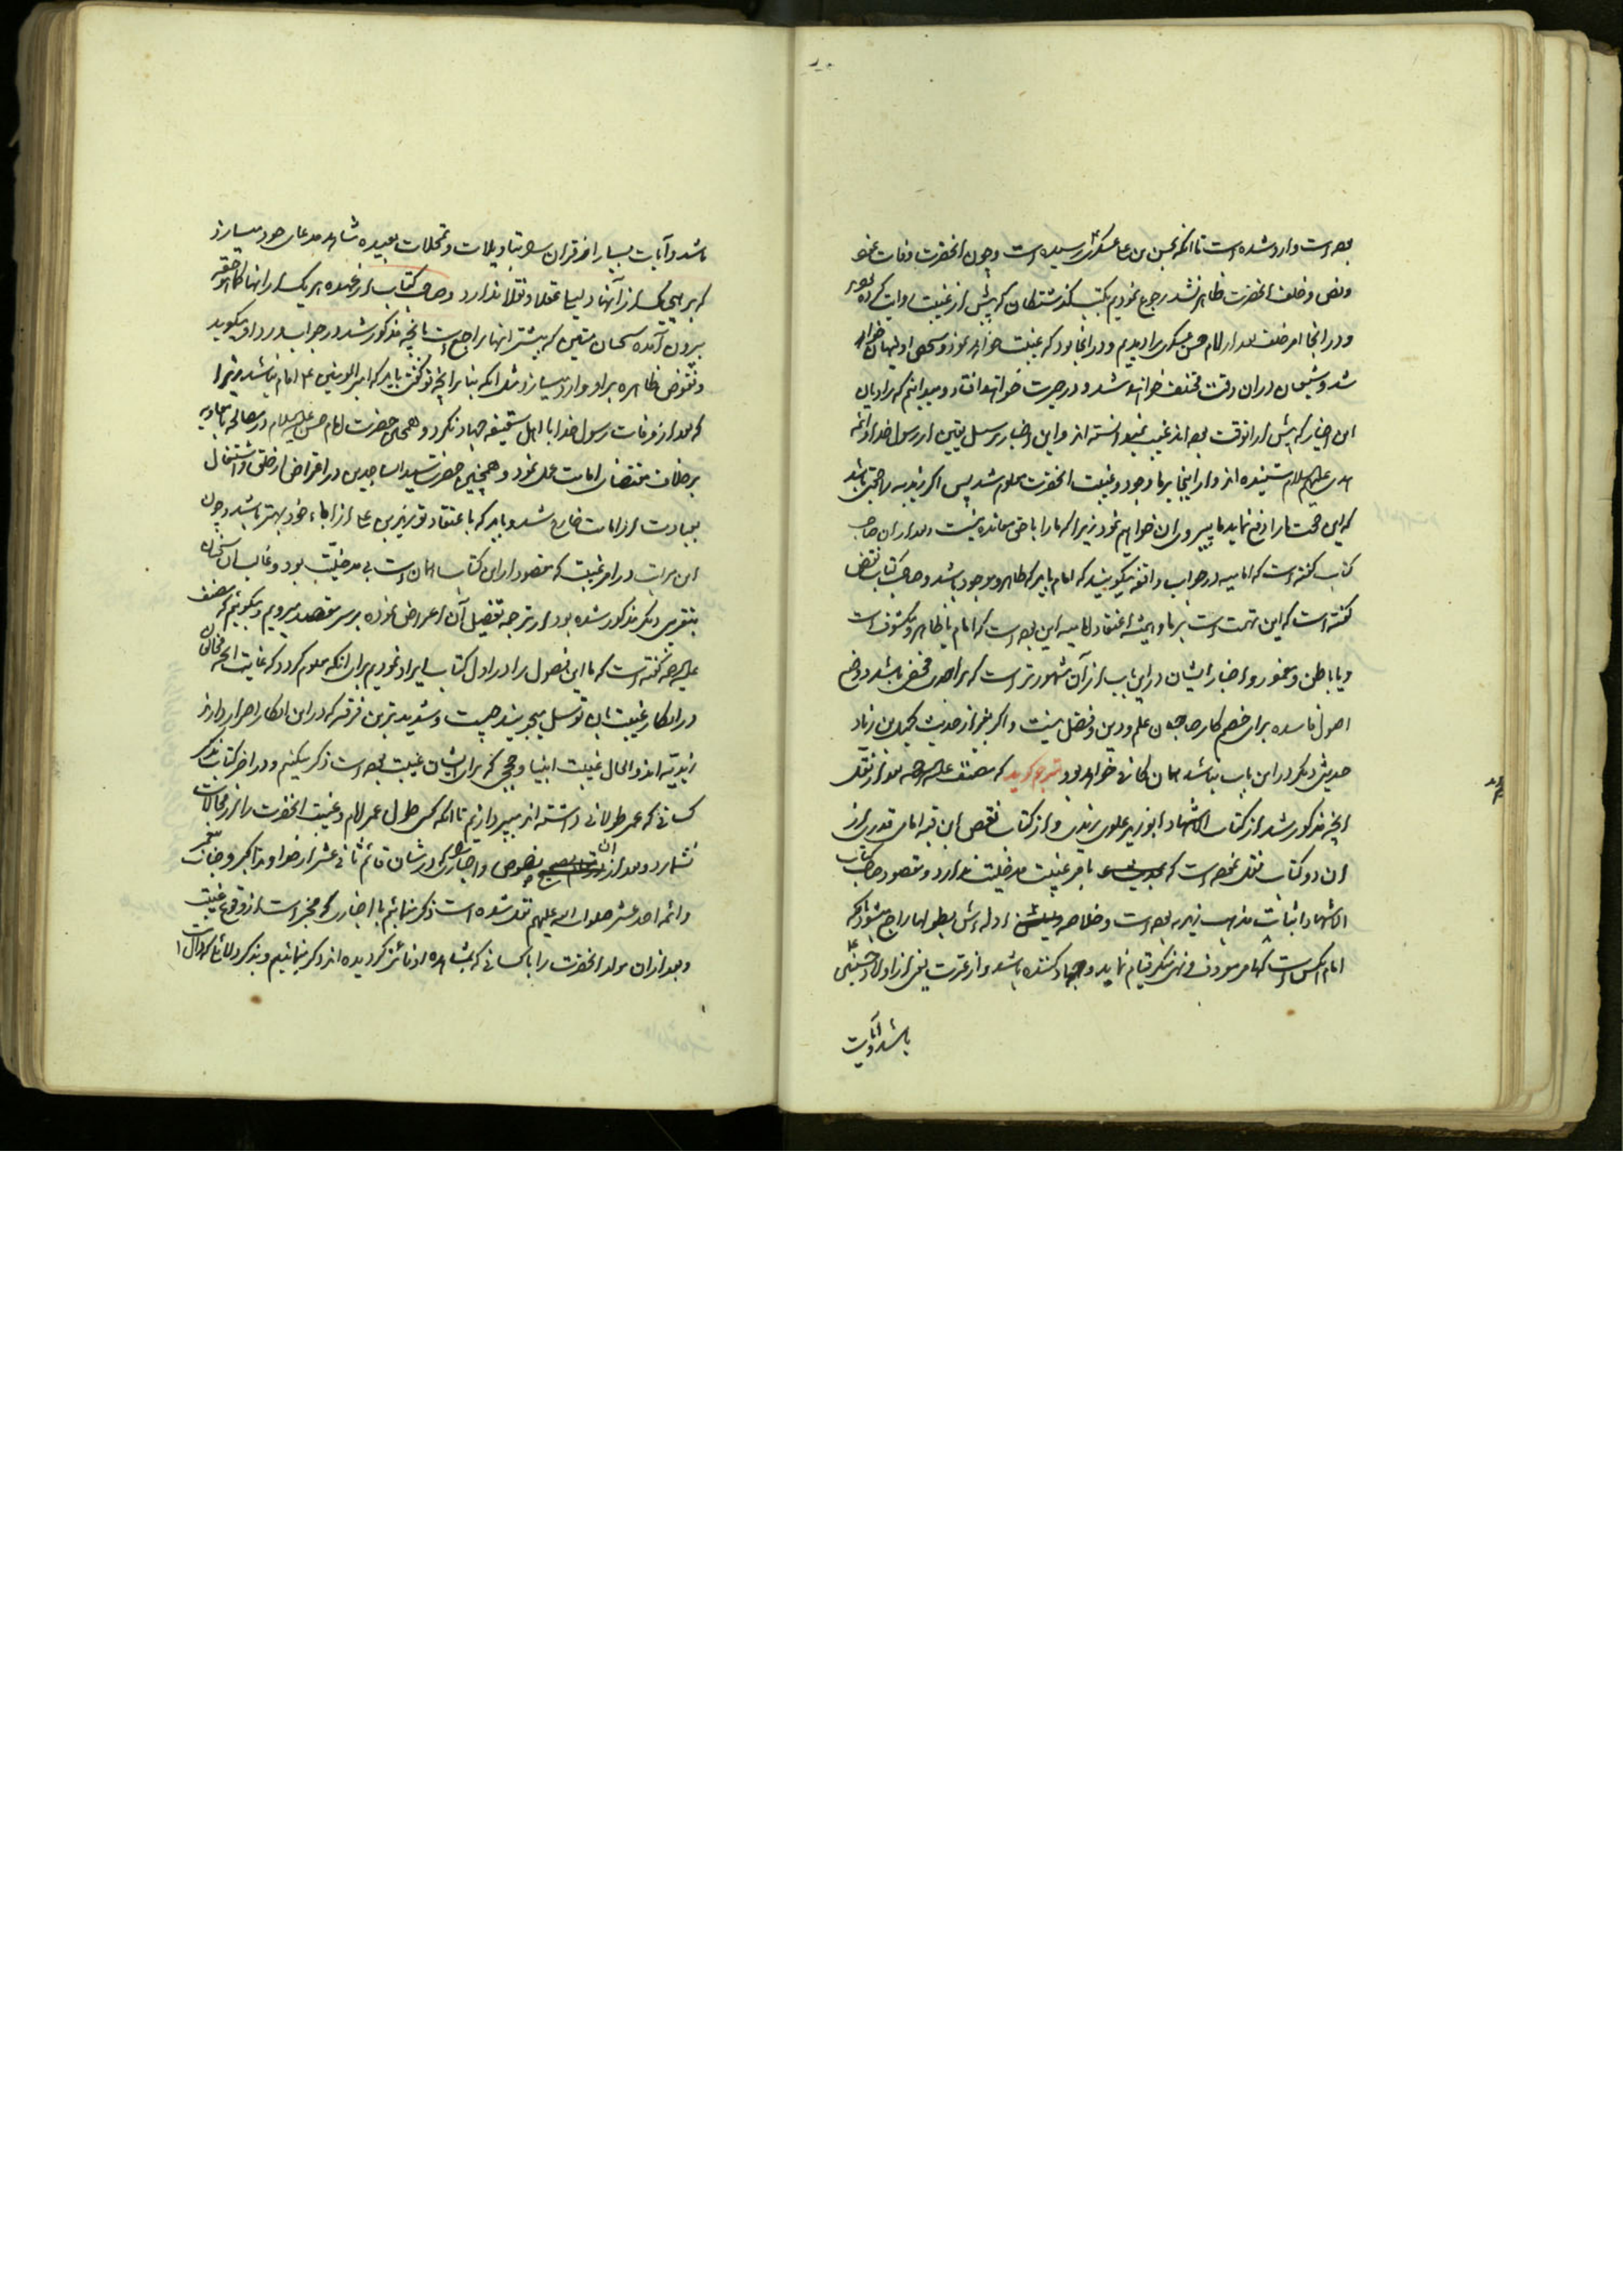 بوده است و وارد شده است تا آنکه بحسن بن علی عسکری رسیده است و چون آنحضرت وفات نمود
و نص و خلف آنحضرت ظاهر نشد رجوع نمودیم بکتب گذشتگان که پیش از غیبت روایت کرده بودند
و در آنجا امر خلف بعد از امام حسن عسکری را دیدیم و در آنجا بود که غیبت خواهد نمود و شخص او پنهان خواهد
شد و شیعیان در آن وقت مختلف خواهند شد و در حیرت خواهند افتاد و میدانیم که راویان
این اخبار که پیش از آنوقت بوده اند غیب نمیدانسته اند و این اخبار بر سبیل یقین از رسول خدا و ائمه
هدی علیهم السلام شنیده اند و از اینجا بر ما وجود و غیبت آنحضرت معلوم شد پس اگر زیدیه را حجتی باشد
که این حجت ما را دفع نماید ما پیروی آن خواهیم نمود زیرا که ما را با حق معانده نیست و بعد از آن صاحب
کتاب گفته است که امامیه در جواب واقفه میگویند که امام باید که ظاهر و موجود باشد و صاحب کتاب نقض
گفته است که این تهمت است بر ما و همیشه اعتقاد امامیه این بوده است که امام یا ظاهر و مکشوف است
و یا باطن و مغمور و اخبار ایشان در این باب از آن مشهورتر است که بر احدی مخفی باشد و وضع
اصول فاسده برای خصم کار صاحبان علم و دین و فضل نیست و اگر بغیر از حدیث کمیل بن زیاد
حدیثی دیگر در این باب نباشد همان کافی خواهد بود مترجم گوید که مصنف علیه الرحمه بعد از نقل
آنچه مذکور شد از کتاب الاشهاد ابو زید علوی زیدی و از کتاب نقض ابن قبه امامی قدری از
آن دو کتاب نقل نموده است که بامر غیبت مدخلیت ندارد و مقصود صاحب کتاب
الاشهاد اثبات مذهب زیدیه بوده است و خلاصه ادله اش بطولها راجع میشود بآنکه
امام آنکس است که بامر معروف و نهی منکر قیام نماید و جهاد کننده باشد و از عترت یعنی از اولاد حسنین ع
باشد و آیات
باشد و آیات بسیار از قرآن بتأویلات و تمحلات بعیده شاهد مدعای خود میسازد
که بر هیچیک از آنها دلیلی عقلا و نقلا ندارد و صاحب کتاب از عهده هر یک از آنها کما هو حقه
بیرون آمده سخنان متین که بیشتر آنها راجع است بآنچه مذکور شد در جواب و رد او میگوید
و نقوض ظاهره بر او وارد میسازد مثل آنکه بنا بر آنچه تو گفتی باید که امیر المؤمنین ع امام نباشد زیرا
که بعد از وفات رسول خدا با اهل سقیفه جهاد نکرد و همچنین حضرت امام حسن علیه السلام در مصالحه با معاویه
بر خلاف مقتضای امامت عمل نمود و همچنین حضرت سید الساجدین در اعراض از خلق و اشتغال
بعبادت از امامت خارج شد و باید که باعتقاد تو زید بن علی از آباء خود بهتر باشد و چون
این مراتب در امر غیبت که مقصود از این کتاب همان است بی مدخلیت بود و غالب آن سخنان
بتقریب دیگر مذکور شده بود از ترجمه تفصیل آن اعراض نموده بر سر مقصد میرویم و میگوئیم که مصنف
علیه الرحمه گفته است که ما این فصول را در اول کتاب ایراد نمودیم برای آنکه معلوم گردد که غایت آنچه مخالفان
در انکار غیبت بآن توسل میجویند چیست و شدیدترین فرقه که در این انکار اصرار دارند
زیدیه اند و الحال غیبت انبیا و حججی که برای ایشان غیبت بوده است ذکر میکنیم و در آخر کتاب بذکر
کسانی که عمر طولانی داشته اند میپردازیم تا آنکه کسی طول عمر امام و غیبت آنحضرت را از محالات
نشمارد و بعد از آن نصوص و اخباری که در شان قائم ثانی عشر از خداوند اکبر و جناب پیغمبر
و ائمه احد عشر صلوات الله علیهم نقل شده است ذکر نمائیم با اخباری که مخبر است از وقوع غیبت
و بعد از آن مولد آنحضرت را با کسانی که بمشاهده او فائز گردیده اند ذکر نمائیم و بذکر دلائل و کرامات